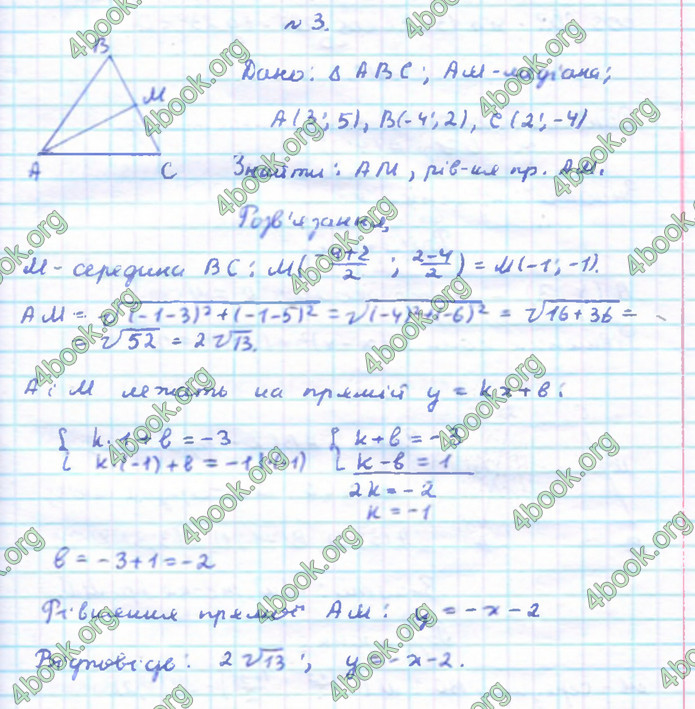 № 3.
B
M
A
C
Дано: Δ ABC; AM - медіана;
A(3; 5), B(-4; 2), C(2; -4)
Знайти: AM, рів-ня пр. AM.
Розв'язання,
M - середина BC: M(-4+2/2 ; 2-4/2) = M(-1; -1).
AM = √(-1-3)² + (-1-5)² = √(-4)² + (-6)² = √16+36 =
= √52 = 2√13.
A і M лежать на прямій y = kx + b:
{ k·1 + b = -3
{ k·(-1) + b = -1 |·(-1)
{ k + b = -3
{ k - b = 1
2k = -2
k = -1
b = -3 + 1 = -2
Рівняння прямої AM: y = -x - 2
Відповідь: 2√13; y = -x - 2.
4book.org